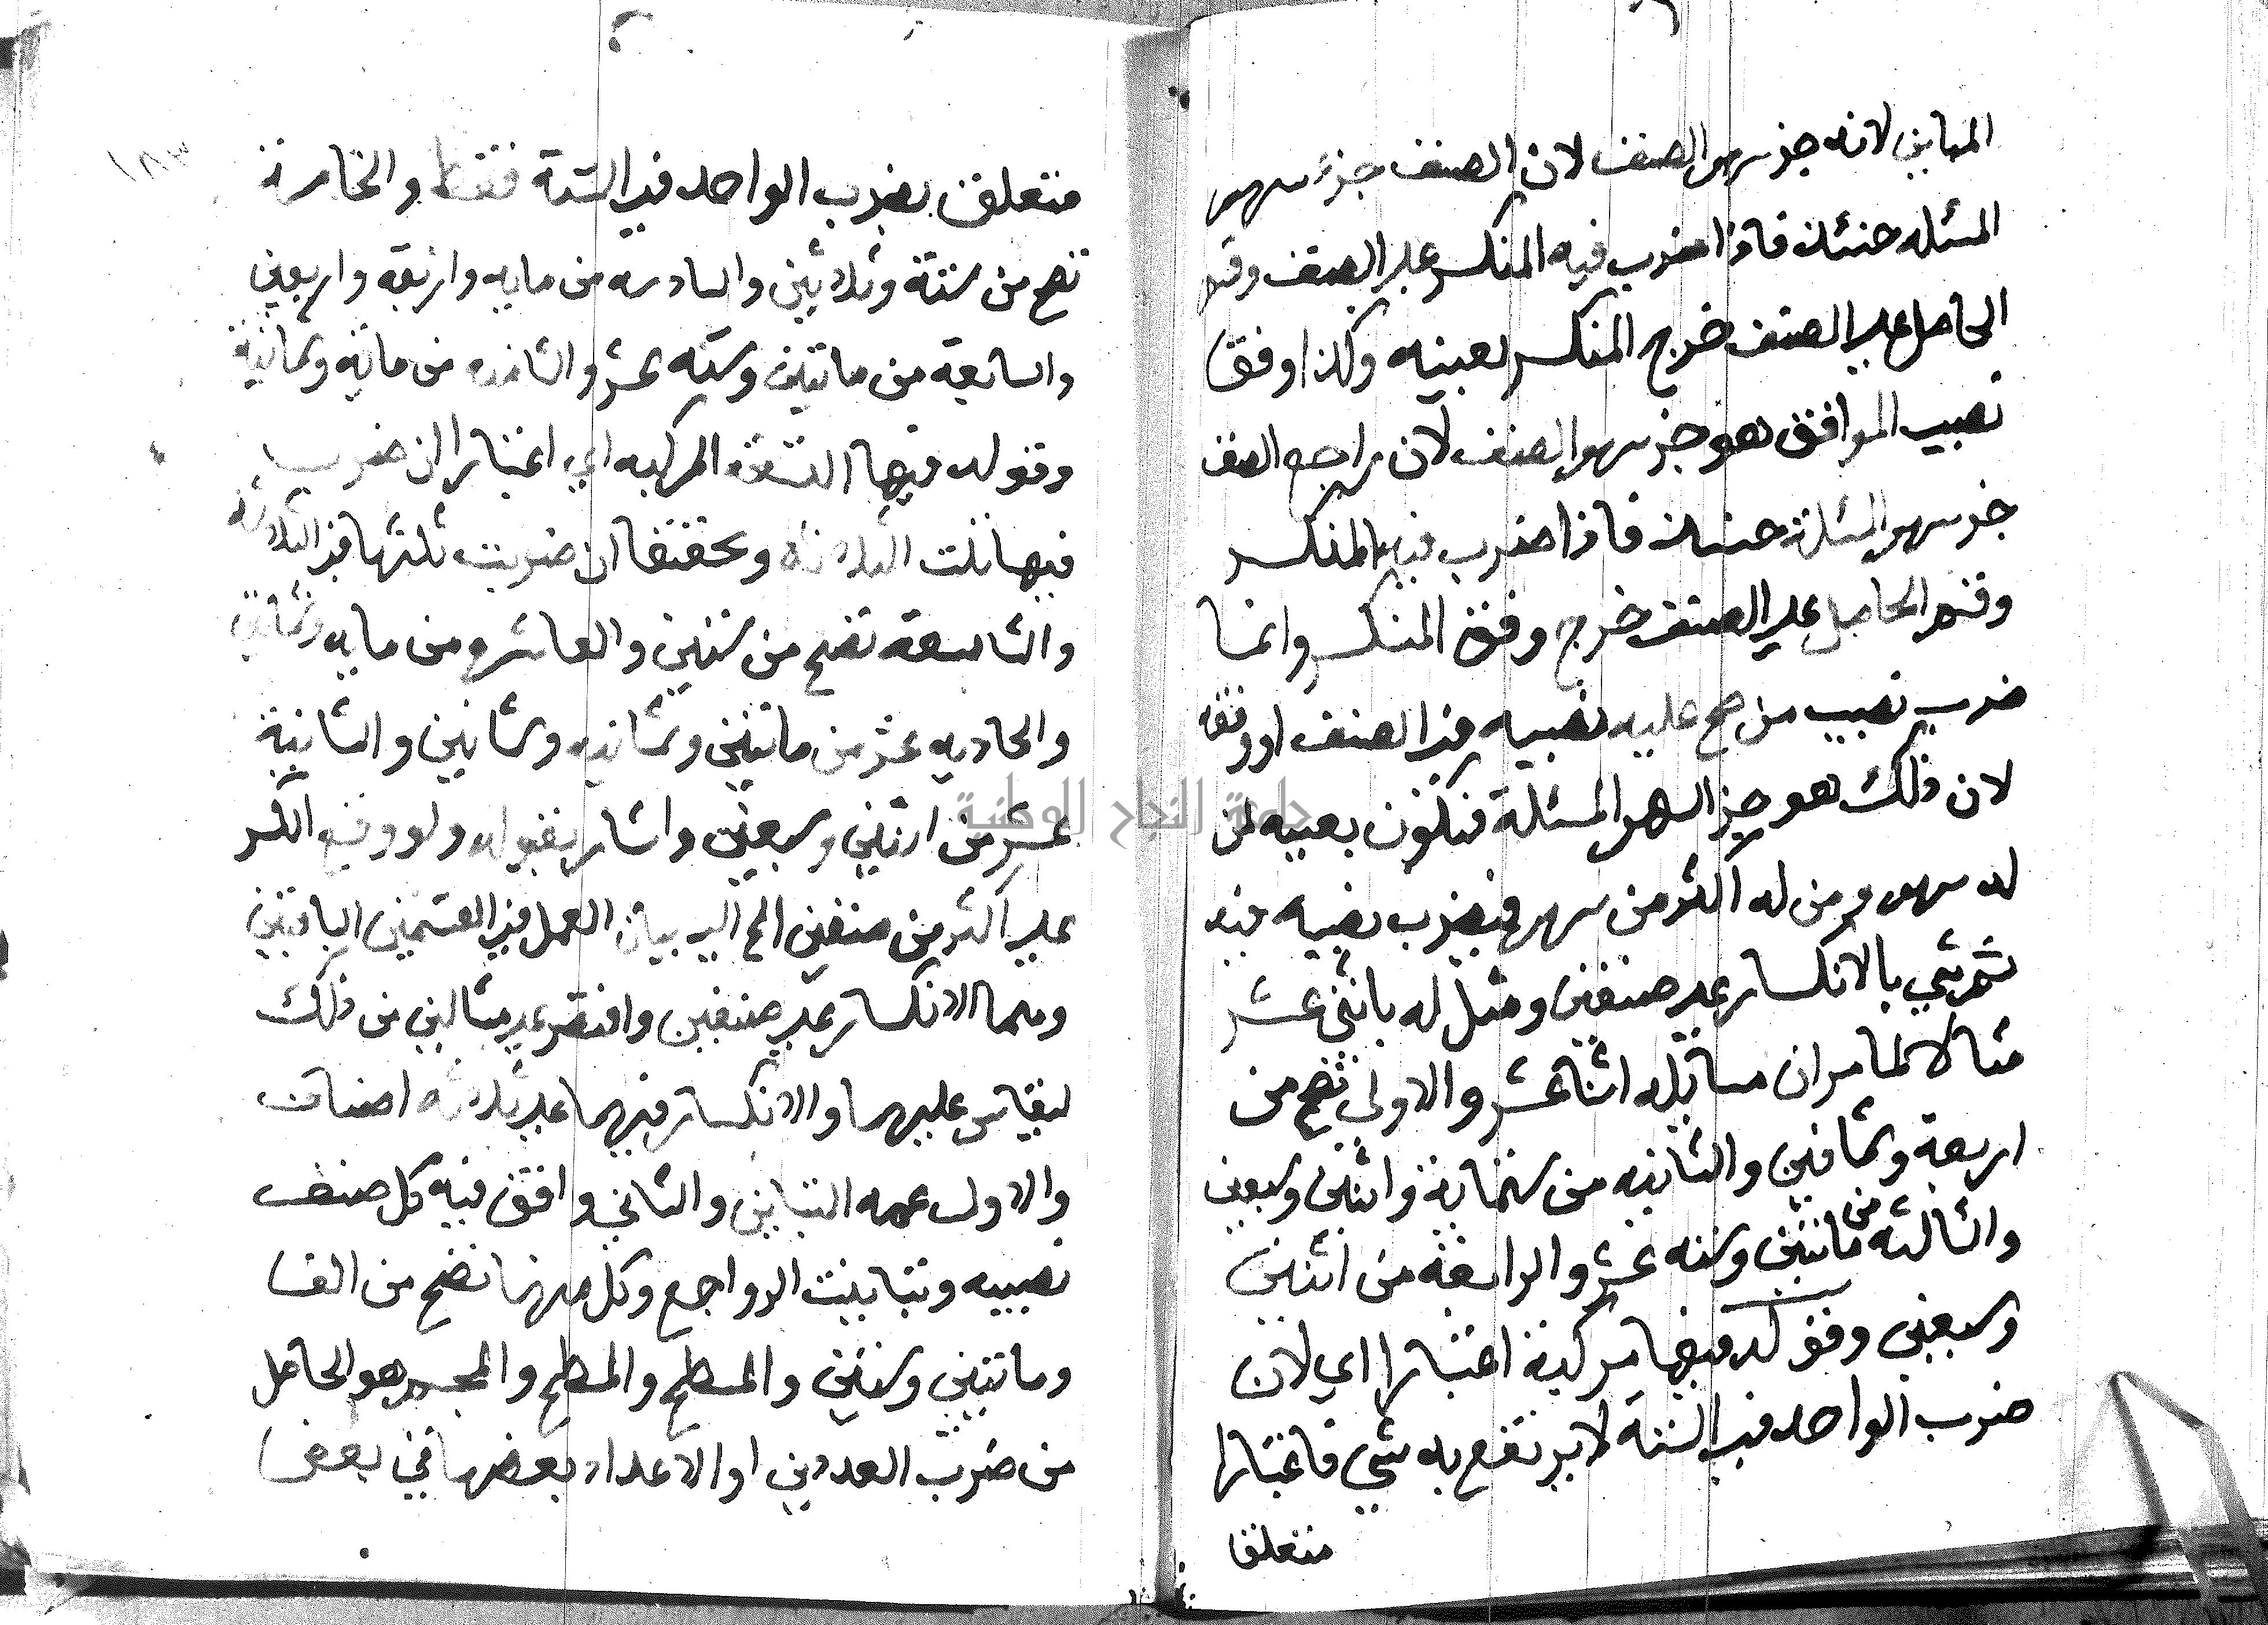 المباين لانه جز سهم الصنف لان الصنف جزء سهم
المسئله حنئذ فاذا ضرب فيه المنكسر على الصنف وقسم
الحاصل على الصنف خرج المنكسر بعينه وكذا وفق
نصيب الموافق هو جز سهم الصنف لان راجع الصنف
جز سهم المسئلة حنئذ فاذا ضرب فيه المنكسر
وقسم الحاصل على الصنف خرج وفق المنكسر وانما
ضرب نصيب من صح عليه نصيبه في الصنف او وفقه
لان ذلك هو جز السهم المسئلة فتكون بعينه لمن
له سهم ومن له اكثر من سهم فيضرب نصيبه فيه
ثم ثني بالانكسار على صنفين ومثل له باثنى عشر
مثالا لما مر ان مسائله اثنا عشر والاولى تصح من
اربعة وثمانين والثانيه من ستماية واثنين وسبعين
والثالثه من مائتين وسته عشر والرابعة من اثنين
وسبعين وقوله فيها مركبة اعتبارا اي لان
ضرب الواحد في الستة لا يرتفع به شي فاعتبارا
متعلق
١٨٣
متعلق بضرب الواحد في الستة فقط والخامسة
تصح من ستة وثلاثين والسادسه من مايه واربعة واربعين
والسابعة من مائتين وسته عشر والثامنه من مائه وثمانية
وقوله فيها القسمه المركبه اي اعتبارا ان ضرب
فيها ثلث الثلاثه وتحقيقا ان ضربت ثلثها في الثلاثه
والتاسعة تصح من ستين والعاشره من مايه وثمانين
والحاديه عشر من مائتين وثمانيه وثمانين والثانية
عشر من اثنين وسبعين واشار بقوله ولو وقع الكسر
على اكثر من صنفين الخ الى بيان العمل في القسمين الباقيين
وهما الانكسار على صنفين واقتصر على مثالين من ذلك
ليقاس عليهما والانكسار فيهما على ثلاثه اصناف
والاول عمه التباين والثاني وافق فيه كل صنف
نصيبه وتباينت الرواجع وكل منهما تصح من الف
ومائتين وستين والمسطح والمسطح والمجسم هو الحاصل
من ضرب العددين او الاعداد بعضها في بعض
جامعة النجاح الوطنية